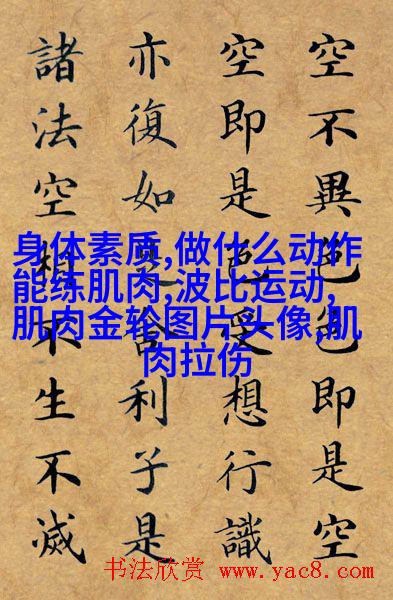 空不異色色即是空
空即是色受想行識
亦復如是舍利子是
諸法空相不生不滅
身体素质,做什么动作
能练肌肉,波比运动,
肌肉金轮图片头像,肌
肉拉伤
书法欣赏 www.yac8.com